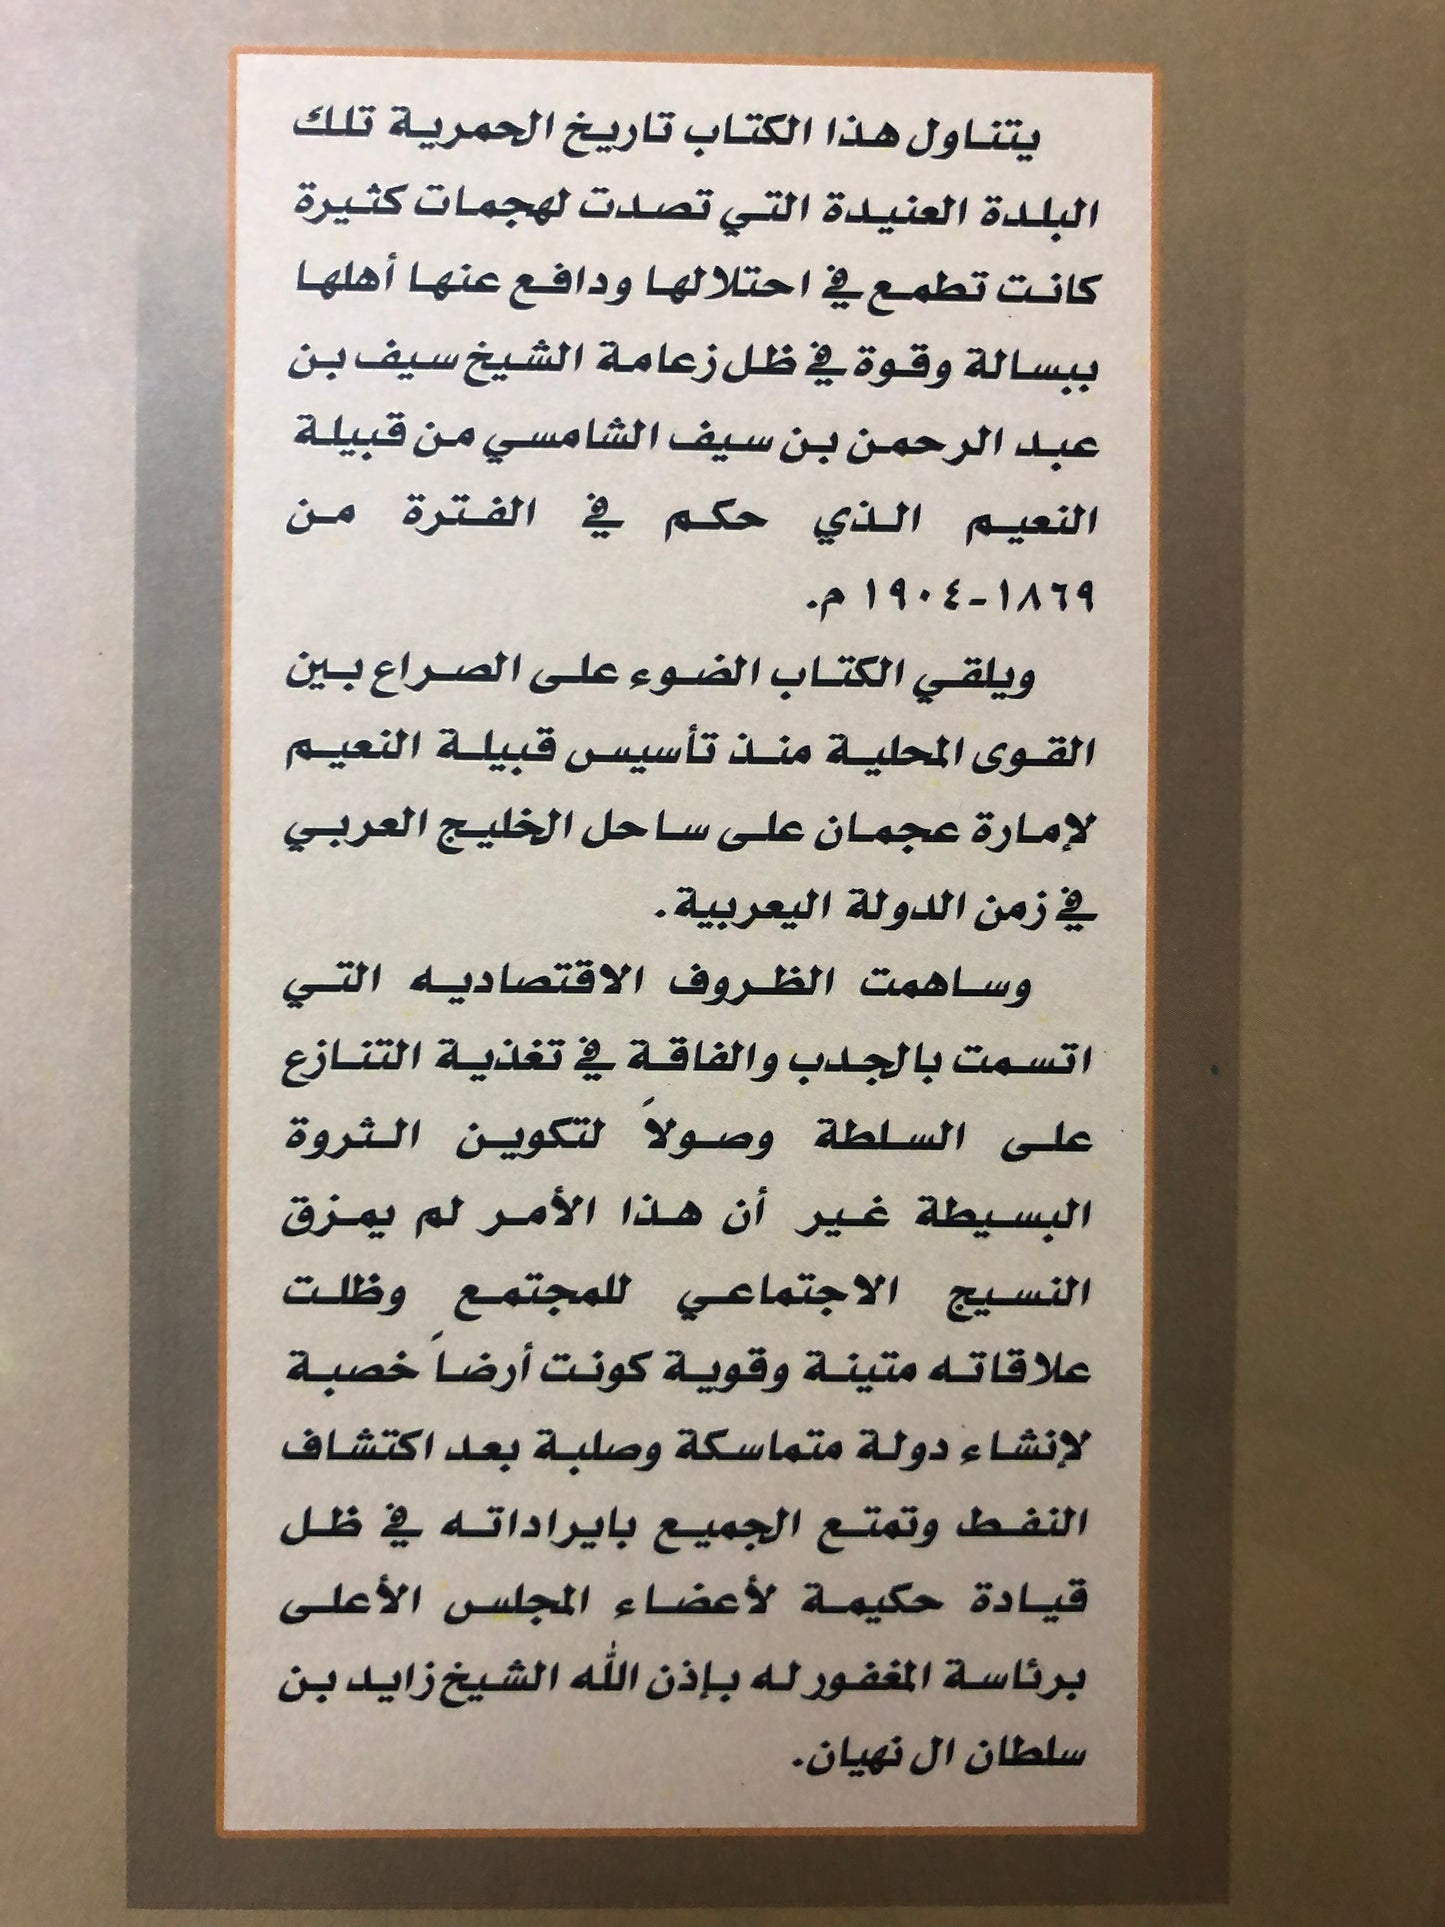 يتناول هذا الكتاب تاريخ الحمرية تلك
البلدة العنيدة التي تصدت لهجمات كثيرة
كانت تطمع في احتلالها ودافع عنها أهلها
ببسالة وقوة في ظل زعامة الشيخ سيف بن
عبد الرحمن بن سيف الشامسي من قبيلة
النعيم الذي حكم في الفترة من
١٨٦٩-١٩٠٤ م.
ويلقي الكتاب الضوء على الصراع بين
القوى المحلية منذ تأسيس قبيلة النعيم
لإمارة عجمان على ساحل الخليج العربي
في زمن الدولة اليعربية.
وساهمت الظروف الاقتصاديه التي
اتسمت بالجدب والفاقة في تغذية التنازع
على السلطة وصولاً لتكوين الثروة
البسيطة غير أن هذا الأمر لم يمزق
النسيج الاجتماعي للمجتمع وظلت
علاقاته متينة وقوية كونت أرضاً خصبة
لإنشاء دولة متماسكة وصلبة بعد اكتشاف
النفط وتمتع الجميع بايراداته في ظل
قيادة حكيمة لأعضاء المجلس الأعلى
برئاسة المغفور له بإذن الله الشيخ زايد بن
سلطان ال نهيان.